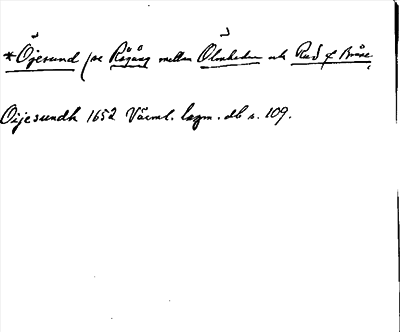 *Öjesund (se Rågång mellan Ölmheden och Rud f Bråne
Oijesundh 1652 Värml. lagm. db s. 109.